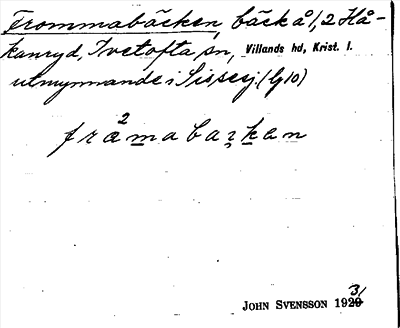 Frommabäcken, bäck å 1,2 Hå-
kanryd, Ivetofta sn, Villands hd, Krist. l.
utmynnande i Sissej (Gx)
fra²mabaꝛkan
JOHN SVENSSON 1931